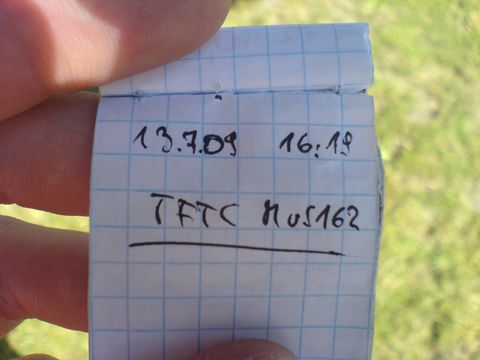 13.7.09 16:19
TFTC MuS162